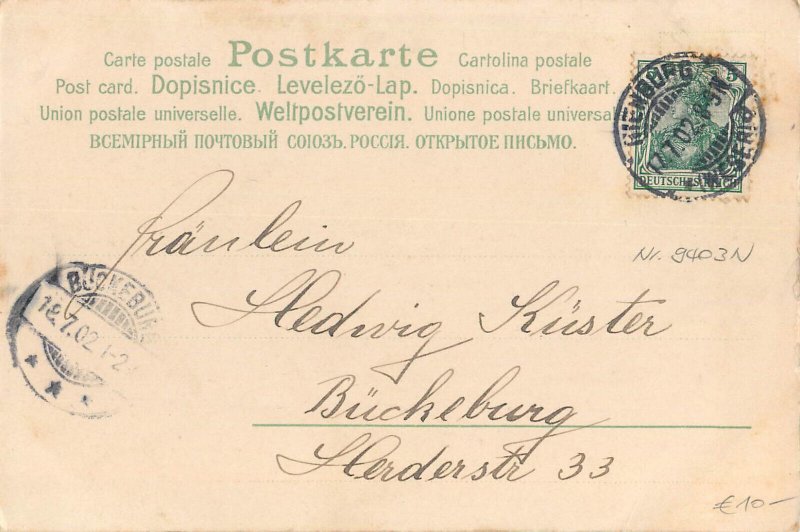 Carte postale Postkarte Cartolina postale
Post card. Dopisnice. Levelező-Lap. Dopisnica. Briefkaart.
Union postale universelle. Weltpostverein. Unione postale universa
ВСЕМІРНЫЙ ПОЧТОВЫЙ СОЮЗЪ. РОССІЯ. ОТКРЫТОЕ ПИСЬМО.
5
NIENBURG
17.7.02
(WESER)
DEUTSCHES
Nr. 9403N
Fräulein
Hedwig Küster
Bückeburg
Herderstr 33
BÜCKEBURG
18.7.02.1-2
€10-